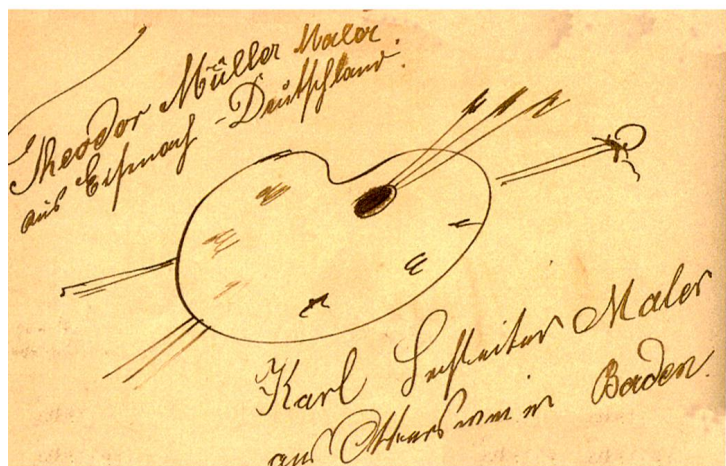 Theodor Müller Maler.
aus Eisenach - Deutschland.
Karl Maler
aus in Baden.